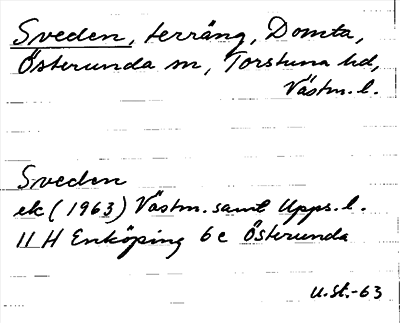 Sveden, terräng, Domta,
Österunda sn, Torstuna hd,
Västm. l.
Sveden
ek (1963) Västm. samt Upps. l.
11 H Enköping 6 c Österunda
u.st.-63